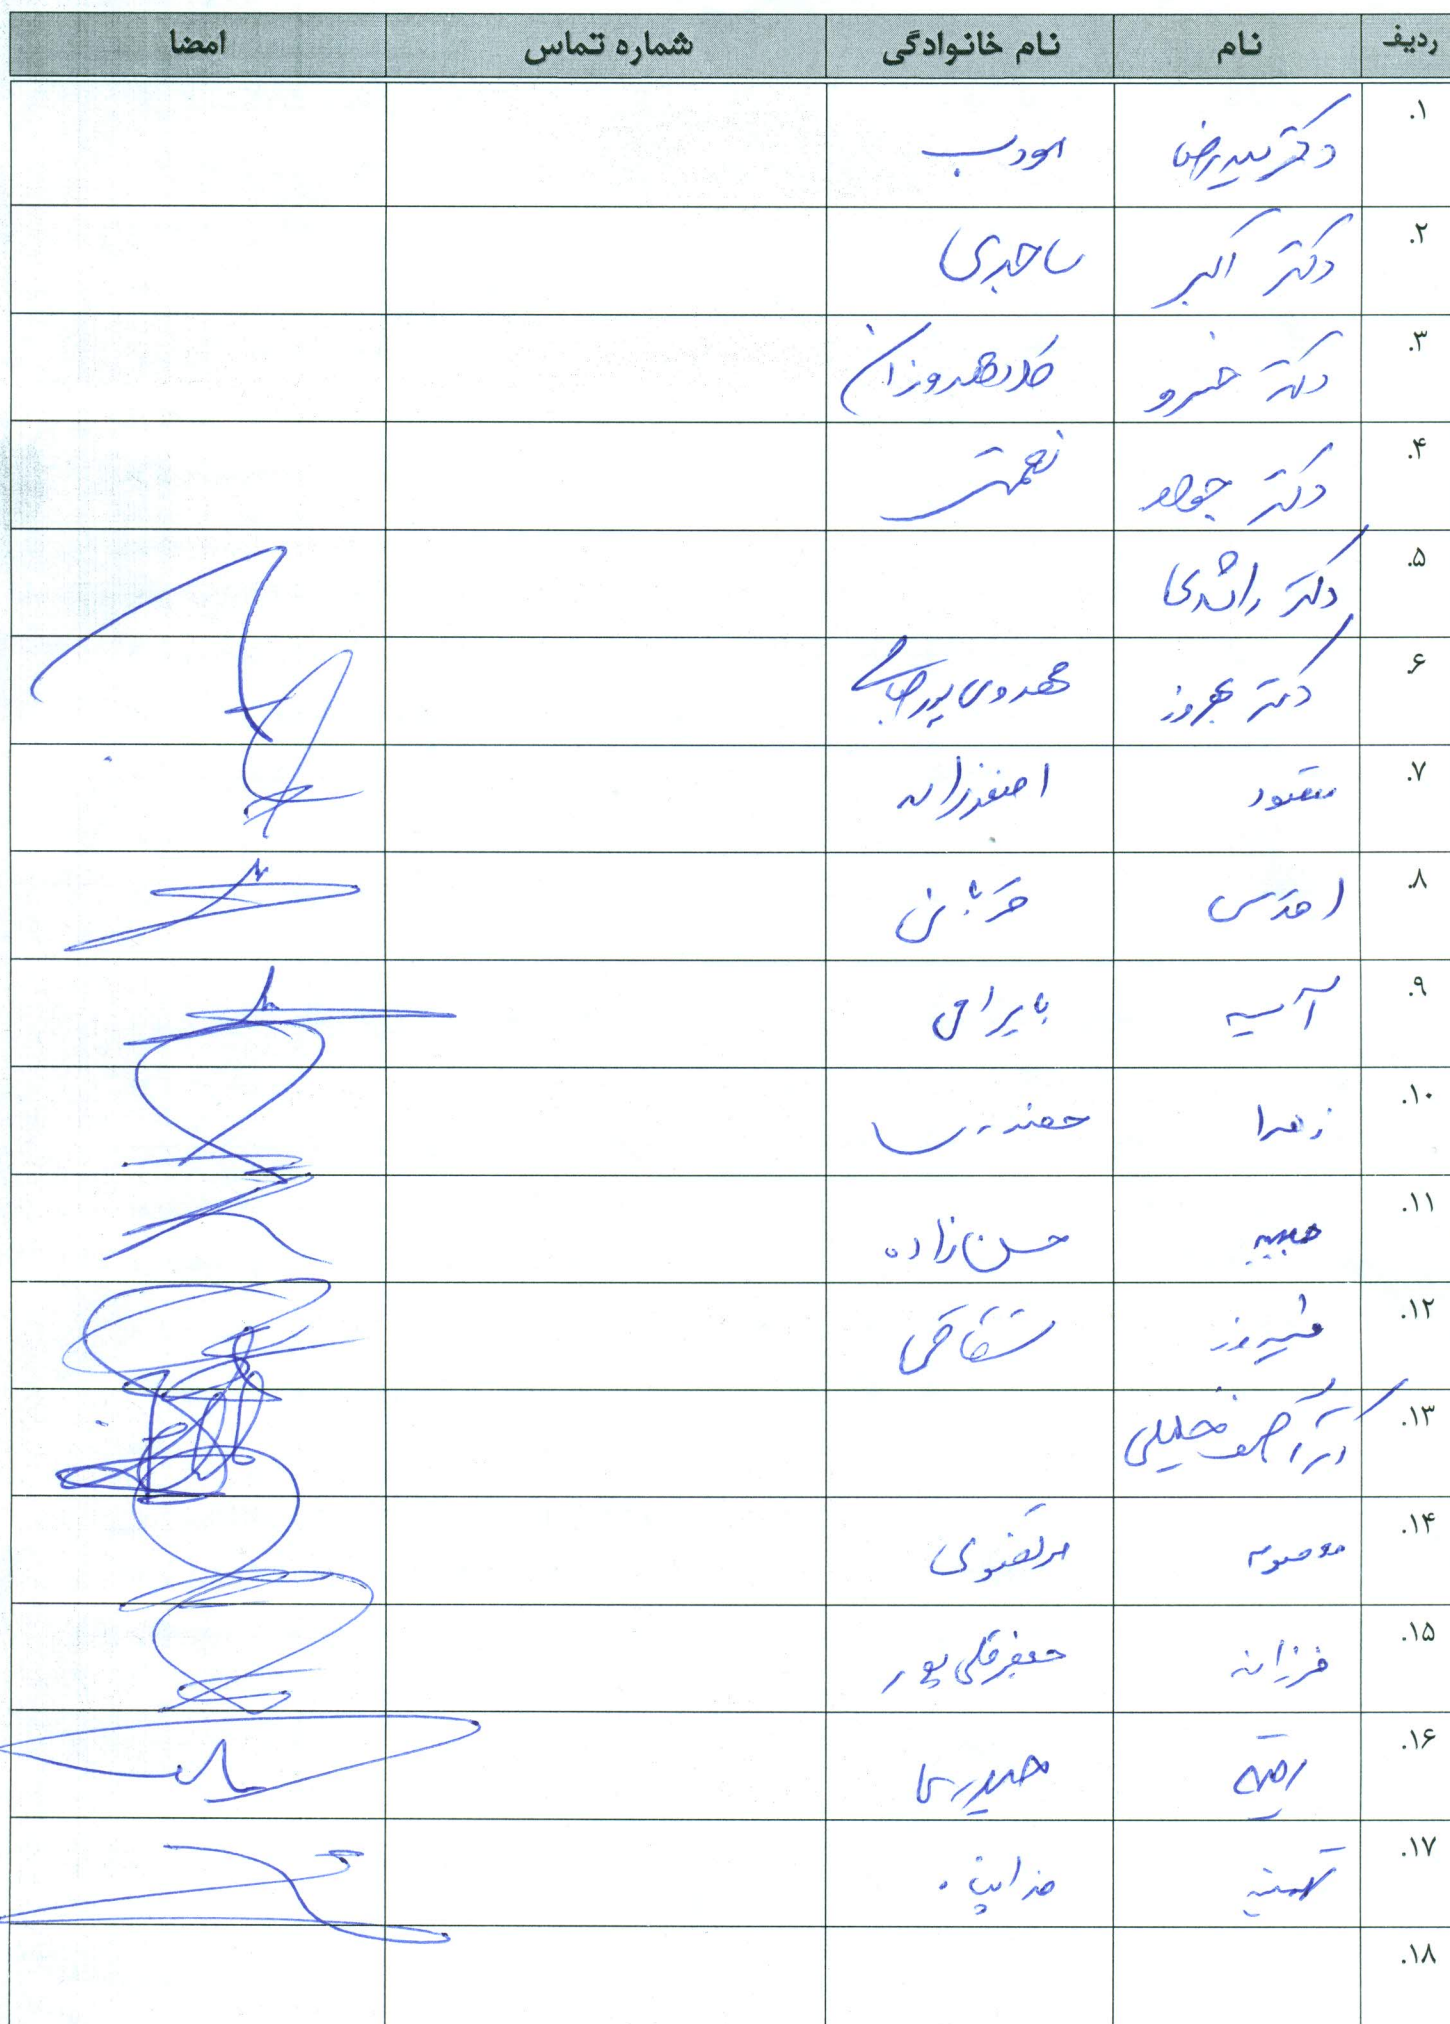 ردیف نام نام خانوادگی شماره تماس امضا
۱. دکتر سیدرضا
۲. دکتر اکبر ساجدی
۳. دکتر خسرو کلاهدوزان
۴. دکتر جواد نعمتی
۵. دکتر راشدی
۶. دکتر بهروز مهدوی پوررضایی
۷.
۸. اقدس قربانی
۹. آسیه بایرامی
۱۰. زهرا
۱۱. حبیبه حسن‌زاده
۱۲. فیروز شقاقی
۱۳. دکتر آصف خلیلی
۱۴. معصومه مرتضوی
۱۵. فرزانه جعفرقلی پور
۱۶. رقیه حیدری
۱۷. تهمینه خداپناه
۱۸.